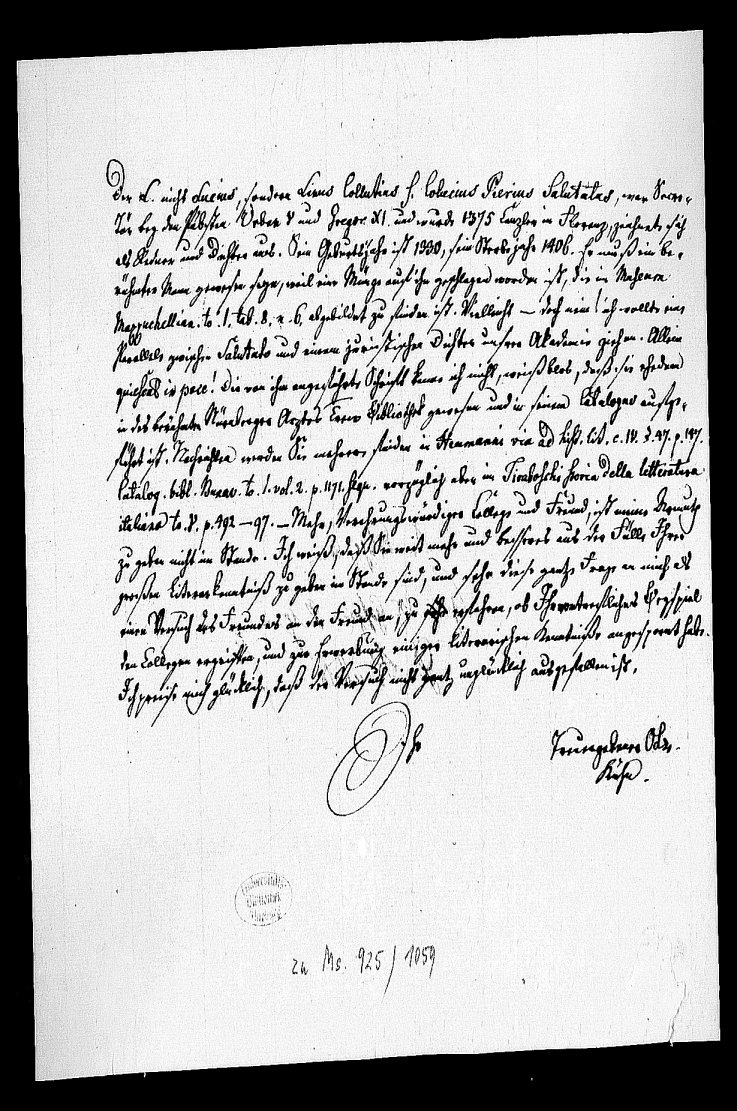 Der L. nicht Lucius, sondern Linus Collutius s. Colucius Pierius Salutatus, war Secre-
tär bey den Päbsten Urban V und Gregor XI. und wurde 1375 Canzler in Florenz, zeichnete sich
als Redner und Dichter aus. Sein Geburtsjahr ist 1330, sein Sterbejahr 1406. Er muß ein be-
rühmter Mann gewesen seyn, weil eine Münze auf ihn geschlagen worden ist, die in Museum
Mazzuchellian. to. 1. tab. 8. n. 6. abgebildet zu finden ist. Vielleicht — doch nein! ich wollte eine
Parallele zwischen Salutato und einem juristischen Dichter unsrer Akademie ziehen. Allein
quiescas in pace! Die von ihm angeführte Schrift kenne ich nicht, weiß blos, daß sie ehedem
in des berühmten Nürnberger Arztes Trew Bibliothek gewesen und in seinem Catalogus aufge-
führt ist. Nachrichten werden Sie mehrere finden in Heumanni via ad hist. lit. c. IV. §. 47. p. 147.
Catalog. bibl. Bunav. to. 1. vol. 2. p. 1171. flgn. vorzüglich aber in Tiraboschi storia della letteratura
italiana to. V. p. 492 — 97. — Mehr, Verehrungswürdiger College und Freund, ist meine Armuth
zu geben nicht im Stande. Ich weiß, daß Sie weit mehr und besseres aus der Fülle Ihrer
großen Literarkenntniß zu geben im Stande sind, und sehe diese ganze Frage an mich als
einen Versuch des Freundes an den Freund an, zu erfahren, ob Ihr vortreffliches Beyspiel
den Collegen ergriffen, und zur Erwerbung einiger literarischen Kenntniße angespornt habe.
Ich preise mich glücklich, daß der Versuch nicht ganz unglücklich ausgefallen ist.
Ihr
Treuergebener
Kühn.
Universitäts
Bibliothek
zu Ms. 925 / 1059